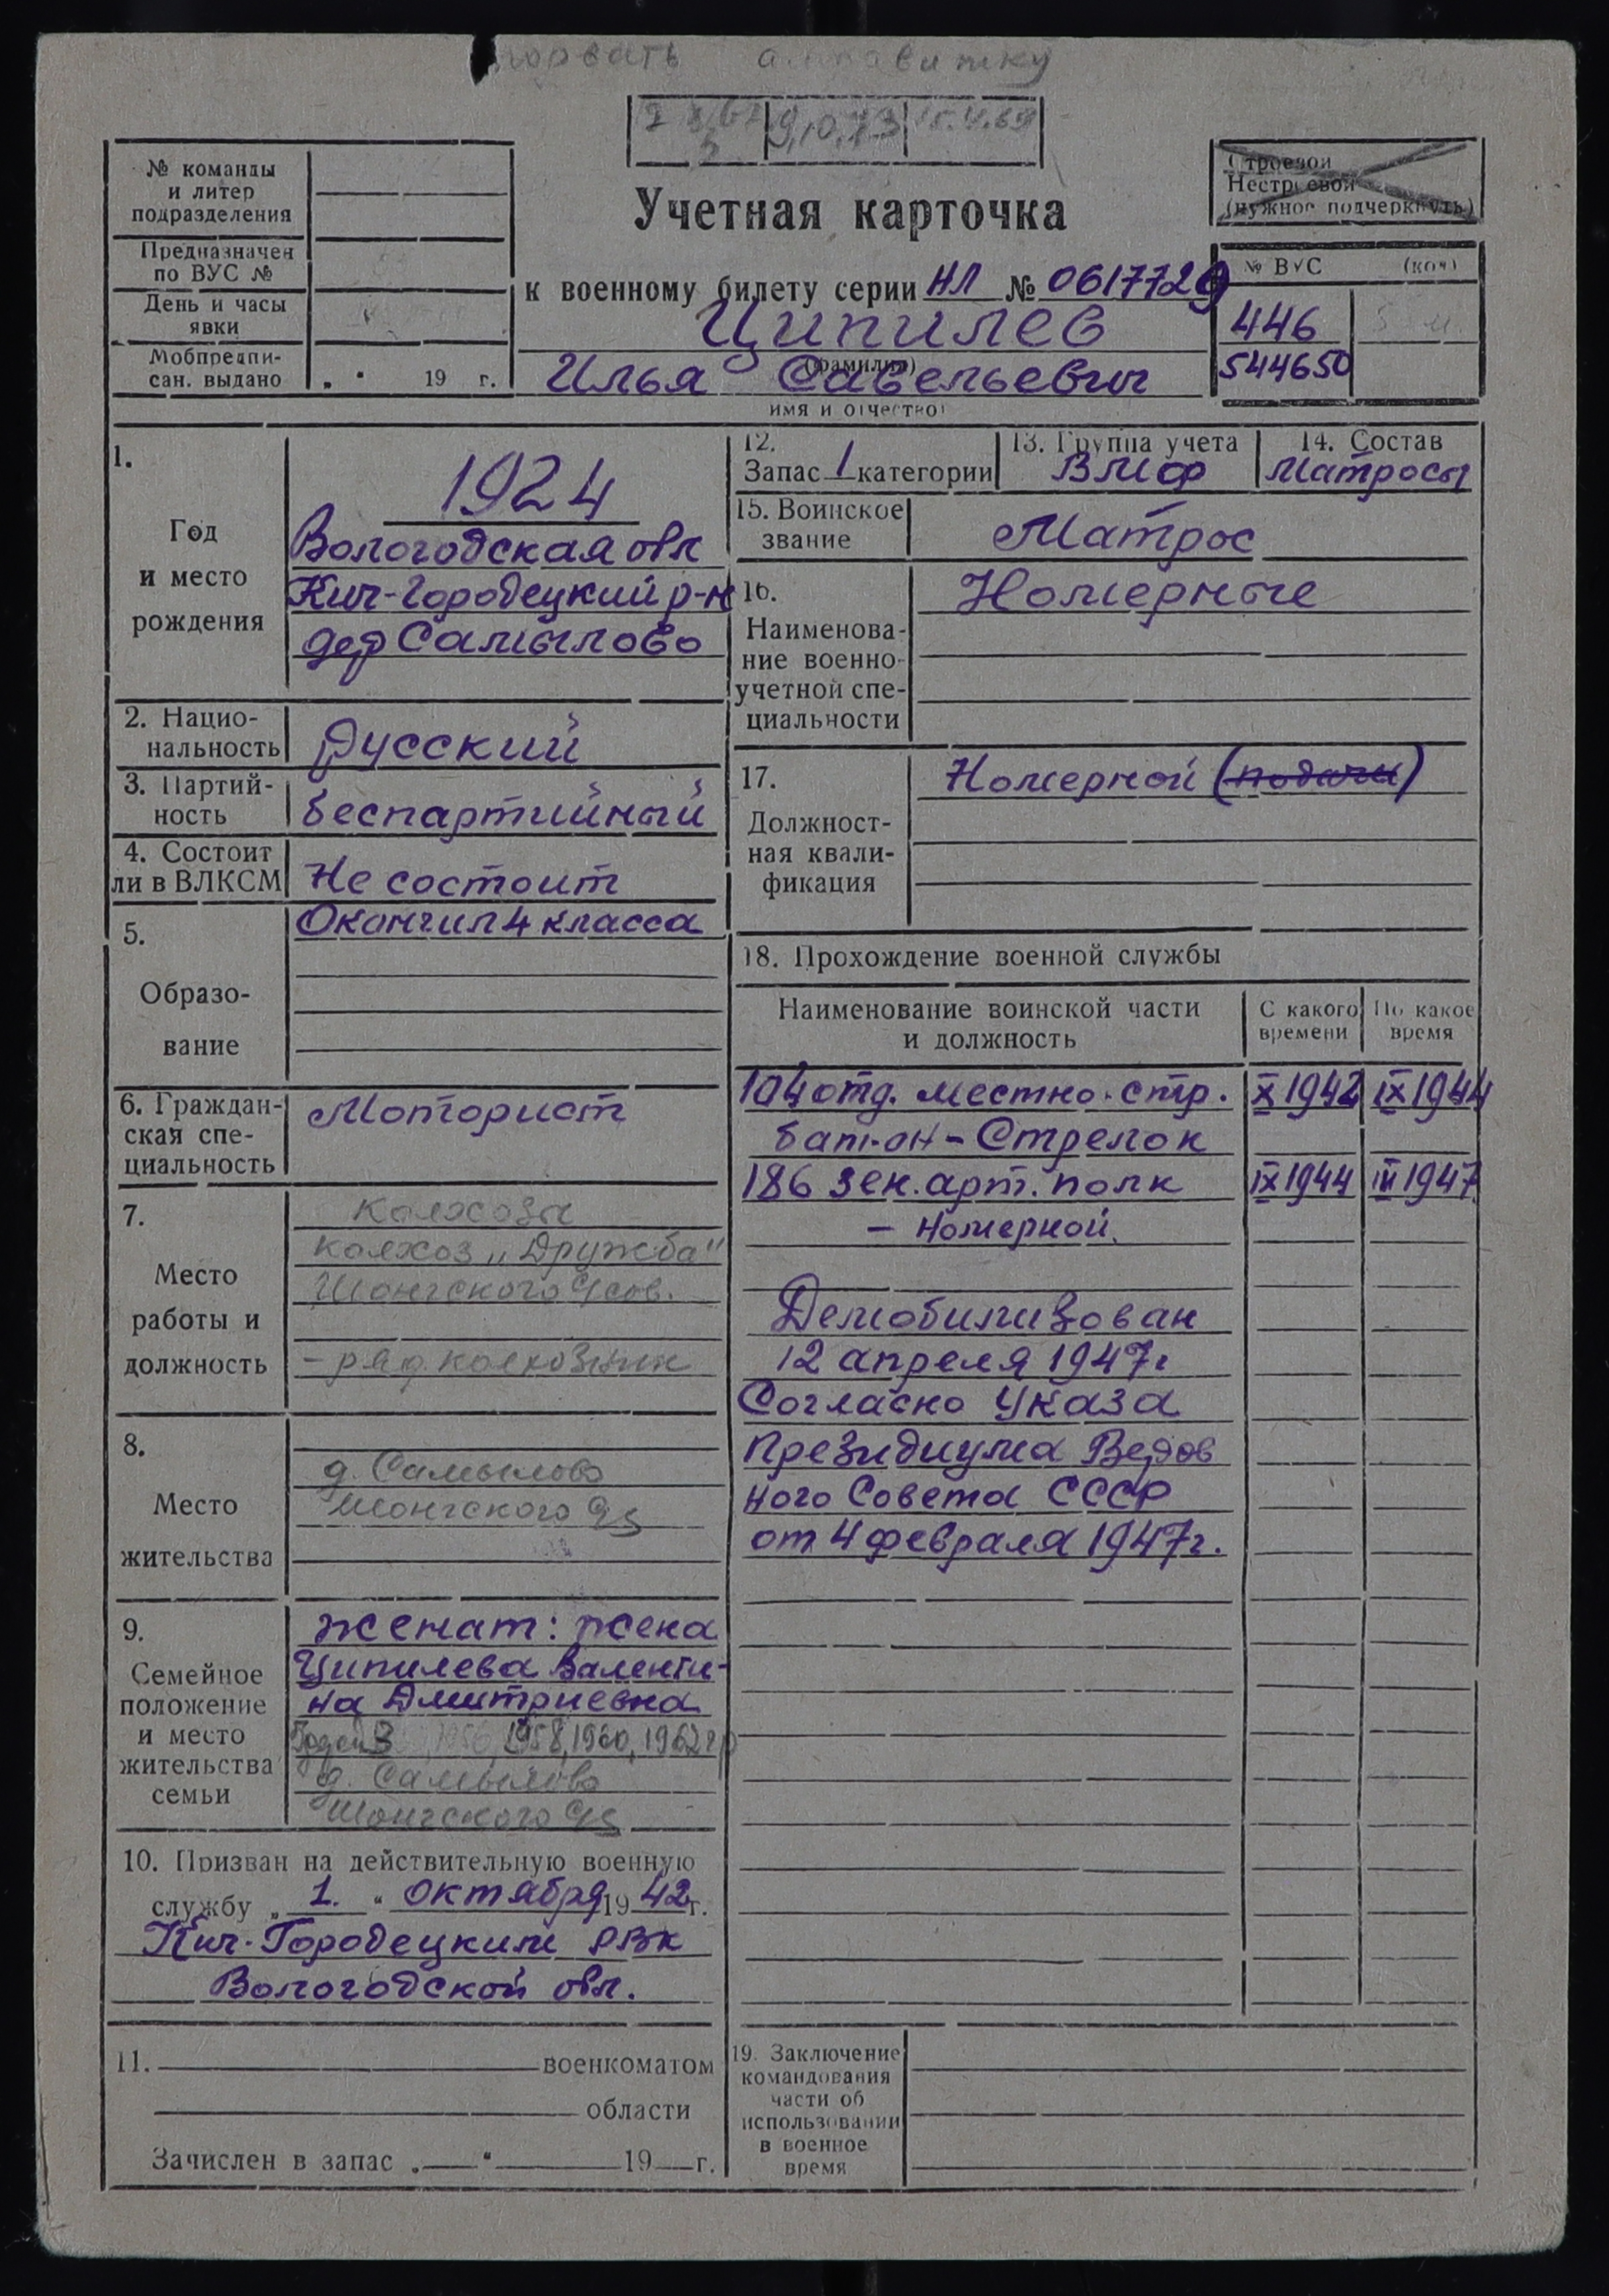 № команды
и литер
подразделения
Предназначен
по ВУС №
День и часы
явки
Мобпредпи-
сан. выдано „ “ 19 г.
9.10.73
15.4.69
Учетная карточка
к военному билету серии НЛ № 0617729
Ципилев
(фамилия)
Илья Савельевич
имя и отчество)
Строевой
Нестроевой
(нужное подчеркнуть)
№ ВУС (код)
446
544650
1.
Год
и место
рождения
1924
Вологодская обл
Кич-Городецкий р-н
дер Самылово
2. Нацио-
нальность
Русский
3. Партий-
ность
беспартийный
4. Состоит
ли в ВЛКСМ
Не состоит
5.
Образо-
вание
Окончил 4 класса
6. Граждан-
ская спе-
циальность
Моторист
7.
Место
работы и
должность
колхозы
колхоз „Дружба"
Шонгского с/сов.
– ряд. колхозник
8.
Место
жительства
д. Самылово
Шонгского с/с
9.
Семейное
положение
и место
жительства
семьи
женат: жена
Ципилева Валенти-
на Дмитриевна
1956, 1958, 1960, 1962 гр
д. Самылово
Шонгского с/с
10. Призван на действительную военную
службу „ 1. “ октября 19 42 г.
Кич-Городецким РВК
Вологодской обл.
11. военкоматом
области
Зачислен в запас „ “ 19 г.
12.
Запас 1 категории
13. Группа учета
ВМФ
14. Состав
Матросы
15. Воинское
звание
Матрос
16.
Наименова-
ние военно-
учетной спе-
циальности
Номерные
17.
Должност-
ная квали-
фикация
Номерной (подачи)
18. Прохождение военной службы
Наименование воинской части
и должность
С какого
времени
По какое
время
104 отд. местно-стр. X 1942 IX 1944
бат-он – Стрелок
186 зен. арт. полк IX 1944 III 1947
– Номерной.
Демобилизован
12 апреля 1947г
Согласно Указа
Президиума Верхов
ного Совета СССР
от 4 февраля 1947г.
19. Заключение
командования
части об
использовании
в военное
время